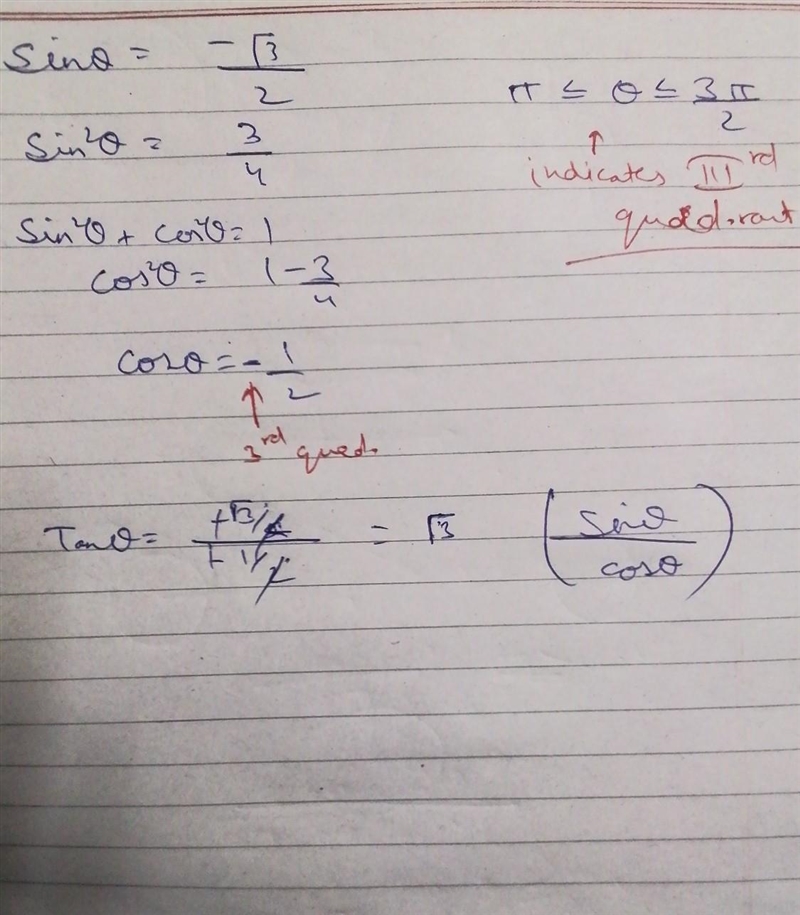 Sinθ = -√3/2
π ≤ θ ≤ 3π/2
↑
indicates IIIrd
quadrant
Sin²θ = 3/4
Sin²θ + cos²θ = 1
cos²θ = 1 - 3/4
cosθ = - 1/2
↑
3rd quad.
Tanθ = (+√3/2)/(+1/2) = √3 (Sinθ/cosθ)